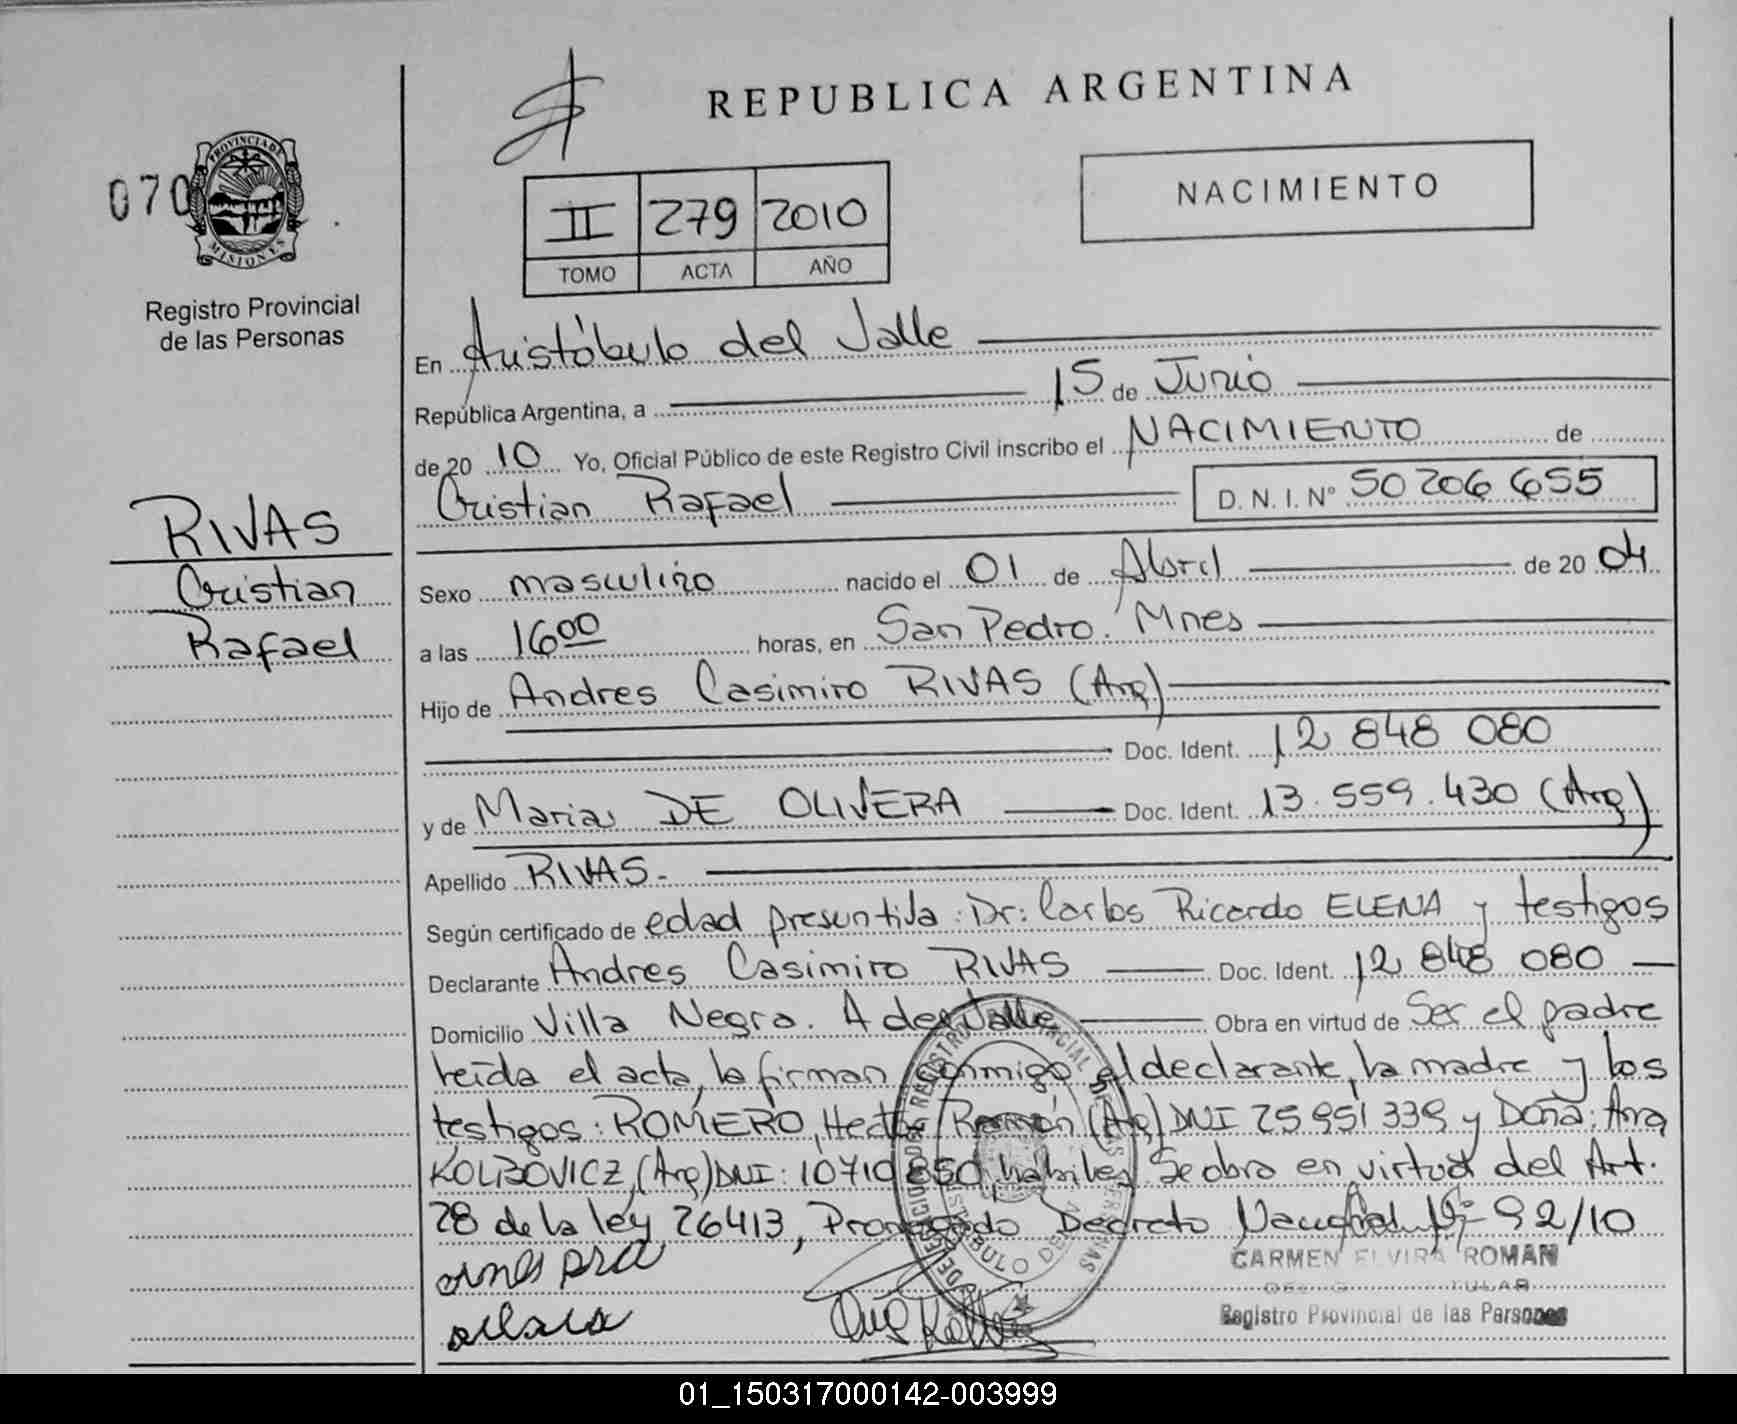 REPUBLICA ARGENTINA
070
PROVINCIA DE
MISIONES
Registro Provincial
de las Personas
II 279 2010
TOMO ACTA AÑO
NACIMIENTO
En Aristóbulo del Valle
República Argentina, a 15 de Junio
de 20 10 Yo, Oficial Público de este Registro Civil inscribo el NACIMIENTO de
Cristian Rafael D. N. I. N° 50 206 655
RIVAS
Cristian
Rafael
Sexo masculino nacido el 01 de Abril de 20 04
a las 16 00 horas, en San Pedro. Mnes
Hijo de Andres Casimiro RIVAS (Arg)
Doc. Ident. 12 848 080
y de Maria DE OLIVERA Doc. Ident. 13.559.430 (Arg)
Apellido RIVAS.
Según certificado de edad presuntiva: Dr: Carlos Ricardo ELENA y testigos
Declarante Andres Casimiro RIVAS Doc. Ident. 12 848 080
Domicilio Villa Negro. A del Valle Obra en virtud de Ser el padre
leida el acta, la firman conmigo el declarante, la madre y los
testigos: ROMERO, Hector Ramón (Arg) DNI 25 951 339 y Doña: Ana
KOLBOVICZ, (Arg) DNI: 10710850, habiles. Se obra en virtud del Art.
28 de la ley 26413, Prorrogado Decreto Nacional N° 92/10
CARMEN ELVIRA ROMAN
Registro Provincial de las Personas
01_150317000142-003999